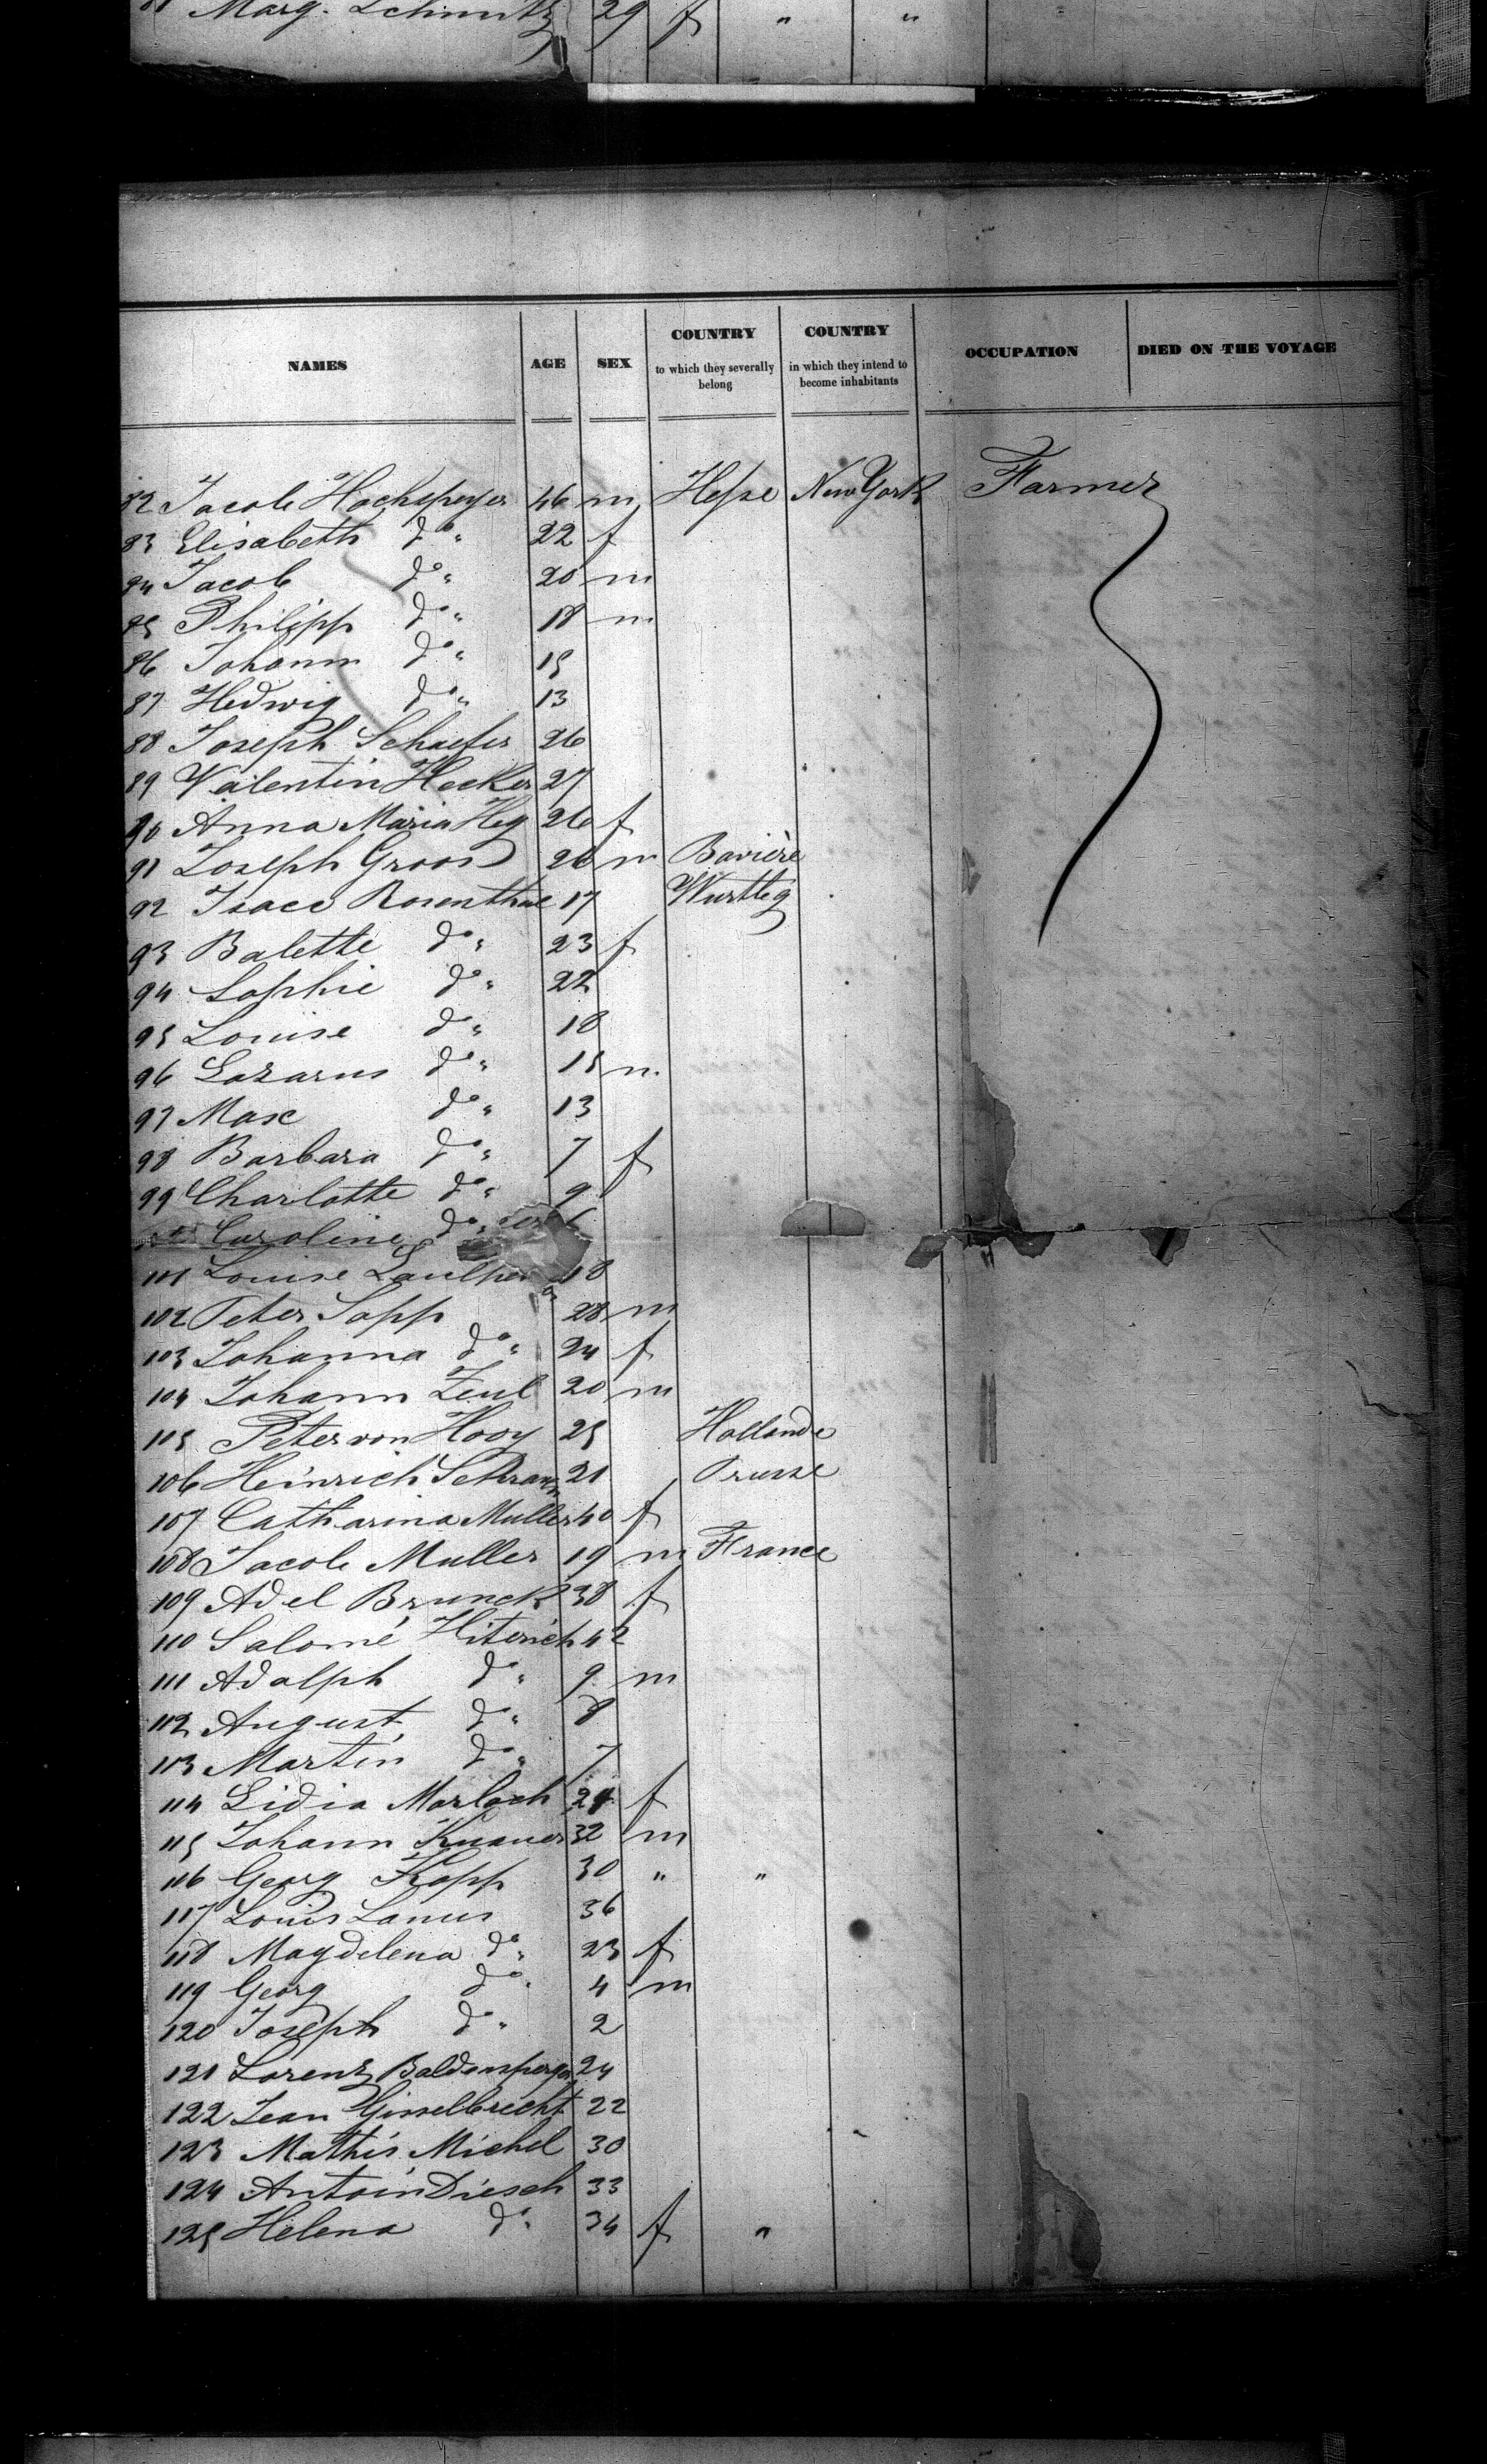 81 Marg. Schmitz 29 f " "
NAMES AGE SEX COUNTRY to which they severally belong COUNTRY in which they intend to become inhabitants OCCUPATION DIED ON THE VOYAGE
82 Jacob Hochspeyer 46 m Hesse New York Farmer
83 Elisabeth do " 22 f
84 Jacob do " 20 m
85 Philipp do " 18 m
86 Johann do " 15
87 Hedwig do " 13
88 Joseph Schaefer 26
89 Valentin Hecker 27
90 Anna Maria Heg 26 f
91 Joseph Groos 26 m Bavière
92 Isaac Rosenthal 17 Wurttbg
93 Balette do " 23 f
94 Sophie do " 22
95 Louise do " 18
96 Lazarus do " 15 m
97 Max do " 13
98 Barbara do " 7 f
99 Charlotte do " 9
Caroline do "
101 Louise 18
102 Peter Sapp 28 m
103 Johanna do " 24 f
104 Johann Zeul 20 m
105 Peter von Hooy 25 Hollande
106 Heinrich Schramm 21 Prusse
107 Catharina Muller 40 f
108 Jacob Muller 19 m France
109 Adel Brunck 38 f
110 Salomé Hiterich 42
111 Adolph do " 9 m
112 August do " 8
113 Martin do " 7
114 Lidia Morloch f
115 Johann Knauer 32 m
116 Georg Kopp 30 " "
117 Louis Lanus 36
118 Magdelena do " 23 f
119 Georg do " 4 m
120 Joseph do " 2
121 Lorenz Baldensperger 24
122 Jean Gisselbrecht 22
123 Mathis Michel 30
124 Antoin Diesch 33
125 Helena do " 34 f "